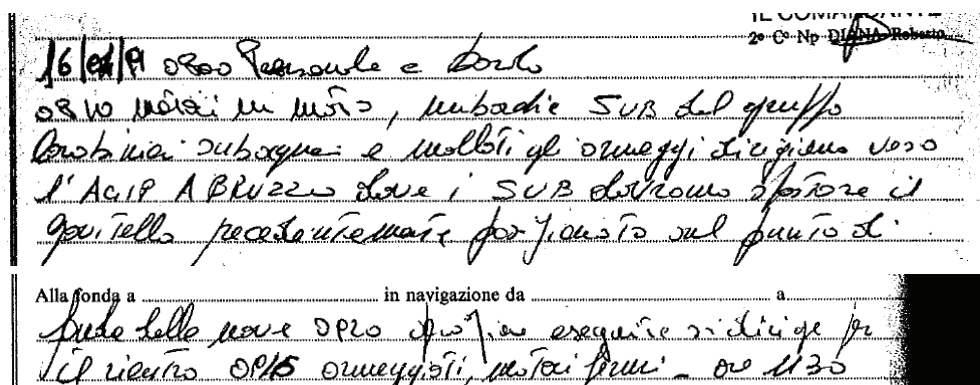 IL COMANDANTE
2° C° Np DIANA Roberto
16/04/91 0800 Personale a bordo
0810 motori in moto, imbarchi SUB del gruppo
Carabinieri subacquei e mollati gli ormeggi dirigiamo verso
l'AGIP ABRUZZO dove i SUB dovranno spostare il
gavitello precedentemente posizionato sul punto di
Alla fonda a in navigazione da a
fonda della nave 0820 operazione eseguite si dirige per
il rientro ormeggiati, motori fermi - ore 1130